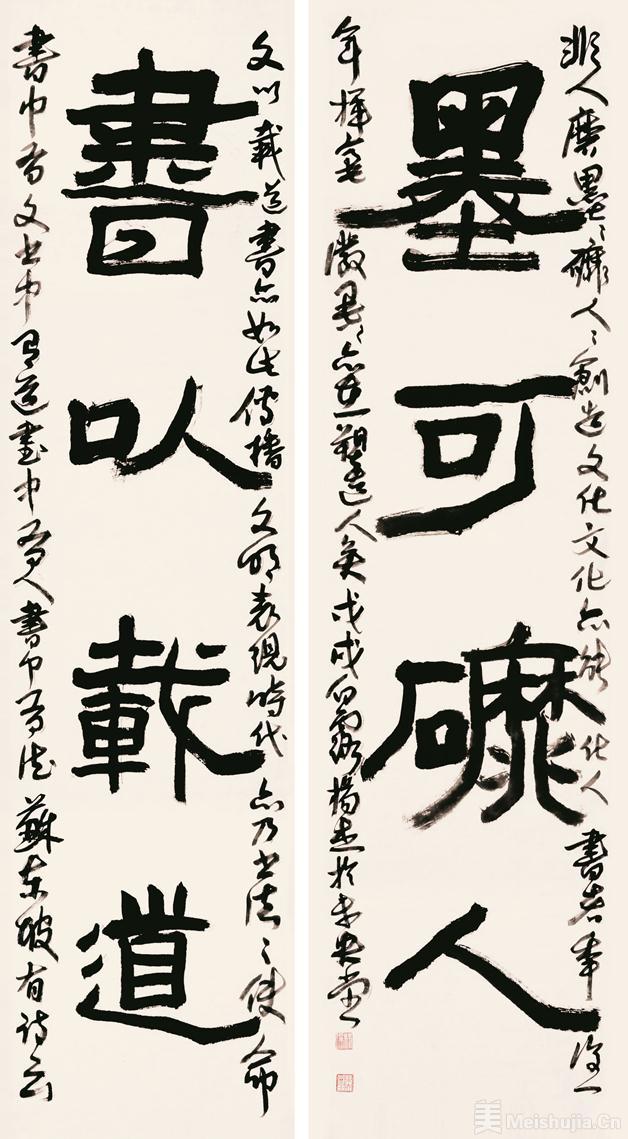 文以載道書亦如此傳播文明表現時代亦乃書法之使命
書以載道
書中有文書中有道書中有人書中有法蘇東坡有詩云
非人磨墨〻礳人〻創造文化文化亦能化人書者奉
墨可礳人
年揮毫潑墨〻亦在塑造人矣戊戌白露楊於未央堂
美 Meishujia.Cn